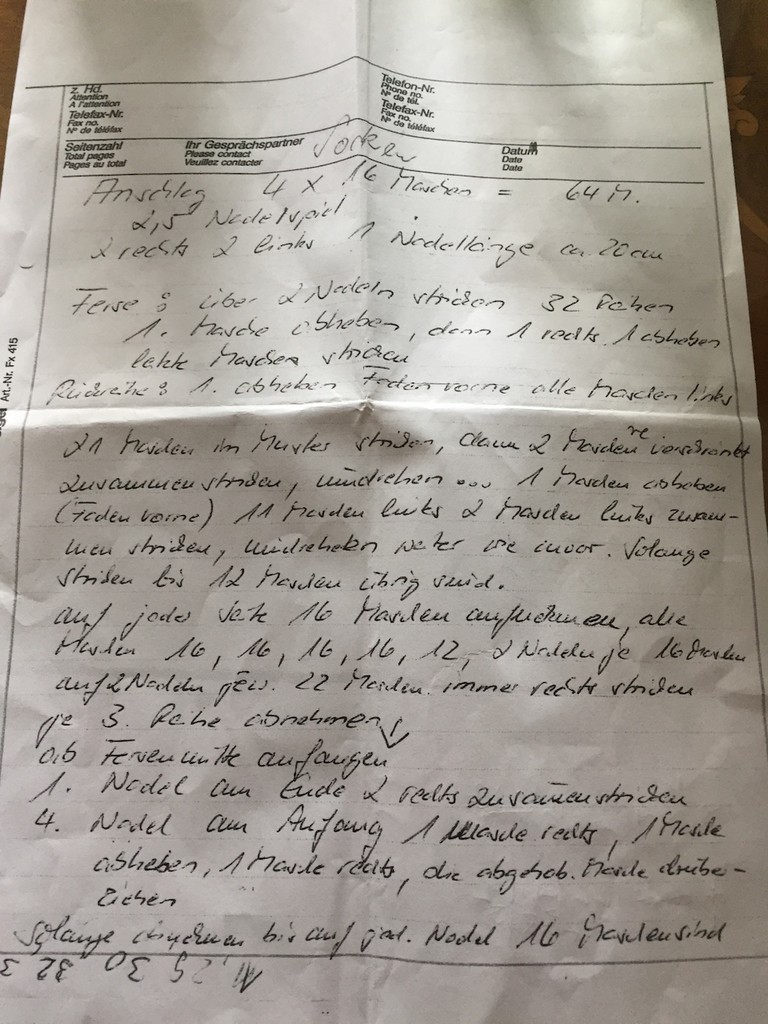 z. Hd.
Attention
A l'attention
Telefax-Nr.
Fax no.
N° de téléfax
Telefon-Nr.
Phone no.
N° de tél.
Telefax-Nr.
Fax no.
N° de téléfax
Seitenzahl
Total pages
Pages au total
Ihr Gesprächspartner
Please contact
Veuillez contacter
Datum
Date
Date
Socken
Anschlag 4 x 16 Maschen = 64 M.
2,5 Nadelspiel
2 rechts 2 links 1 Nadellänge ca. 20 cm
Ferse : über 2 Nadeln stricken 32 Reihen
1. Masche abheben, dann 1 rechts 1 abheben
letzte Maschen stricken
Rückreihe : 1. abheben Faden vorne alle Maschen links
21 Maschen im Muster stricken, dann 2 Maschen re verschränkt
zusammenstricken, umdrehen ... 1 Maschen abheben
(Faden vorne) 11 Maschen links 2 Maschen links zusam-
men stricken, umdrehen weiter wie zuvor. Solange
stricken bis 12 Maschen übrig sind.
auf jeder Seite 16 Maschen aufnehmen, alle
Maschen 16, 16, 16, 16, 12, 2 Nadeln je 16 Maschen
auf 2 Nadeln jew. 22 Maschen. immer rechts stricken
je 3. Reihe abnehmen!
ab Fersenmitte anfangen
1. Nadel am Ende 2 rechts zusammenstricken
4. Nadel am Anfang 1 Masche rechts, 1 Masche
abheben, 1 Masche rechts, die abgehob. Masche drüber-
ziehen
Solange abnehmen bis auf jed. Nadel 16 Maschen sind
Art.-Nr. Fx 415